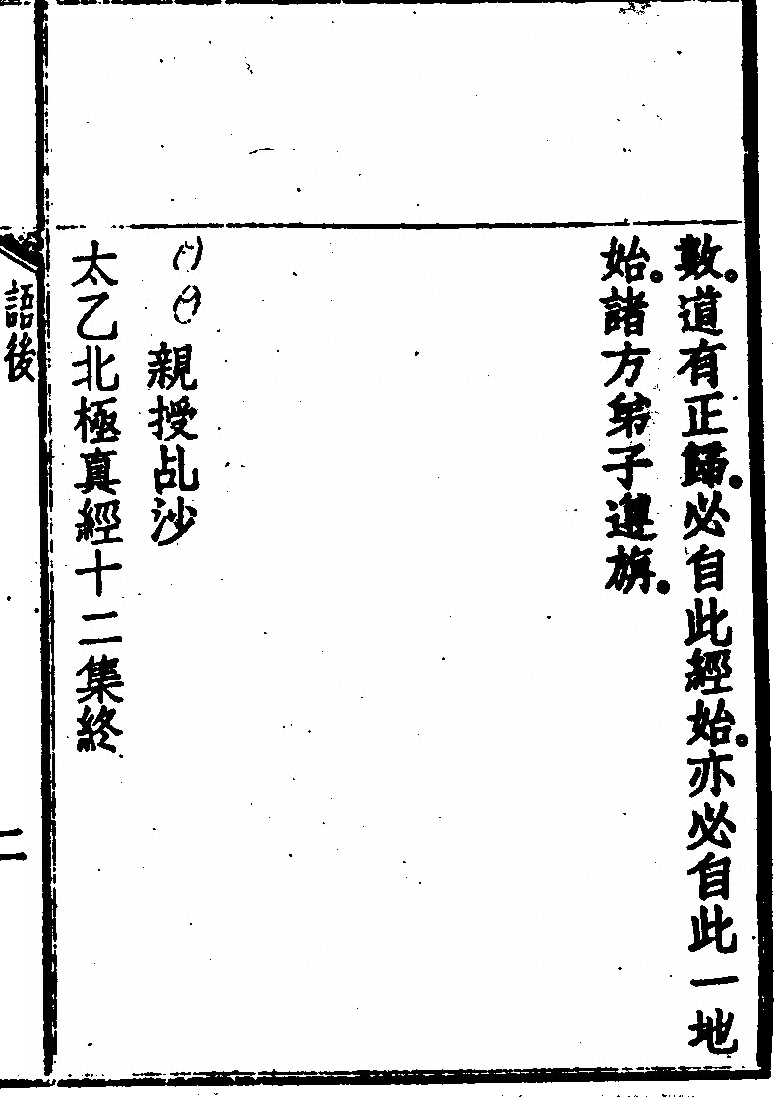 數。道有正歸。必自此經始。亦必自此一地
始。諸方弟子遵旃。
親授乩沙
太乙北極真經十二集終
語後
二